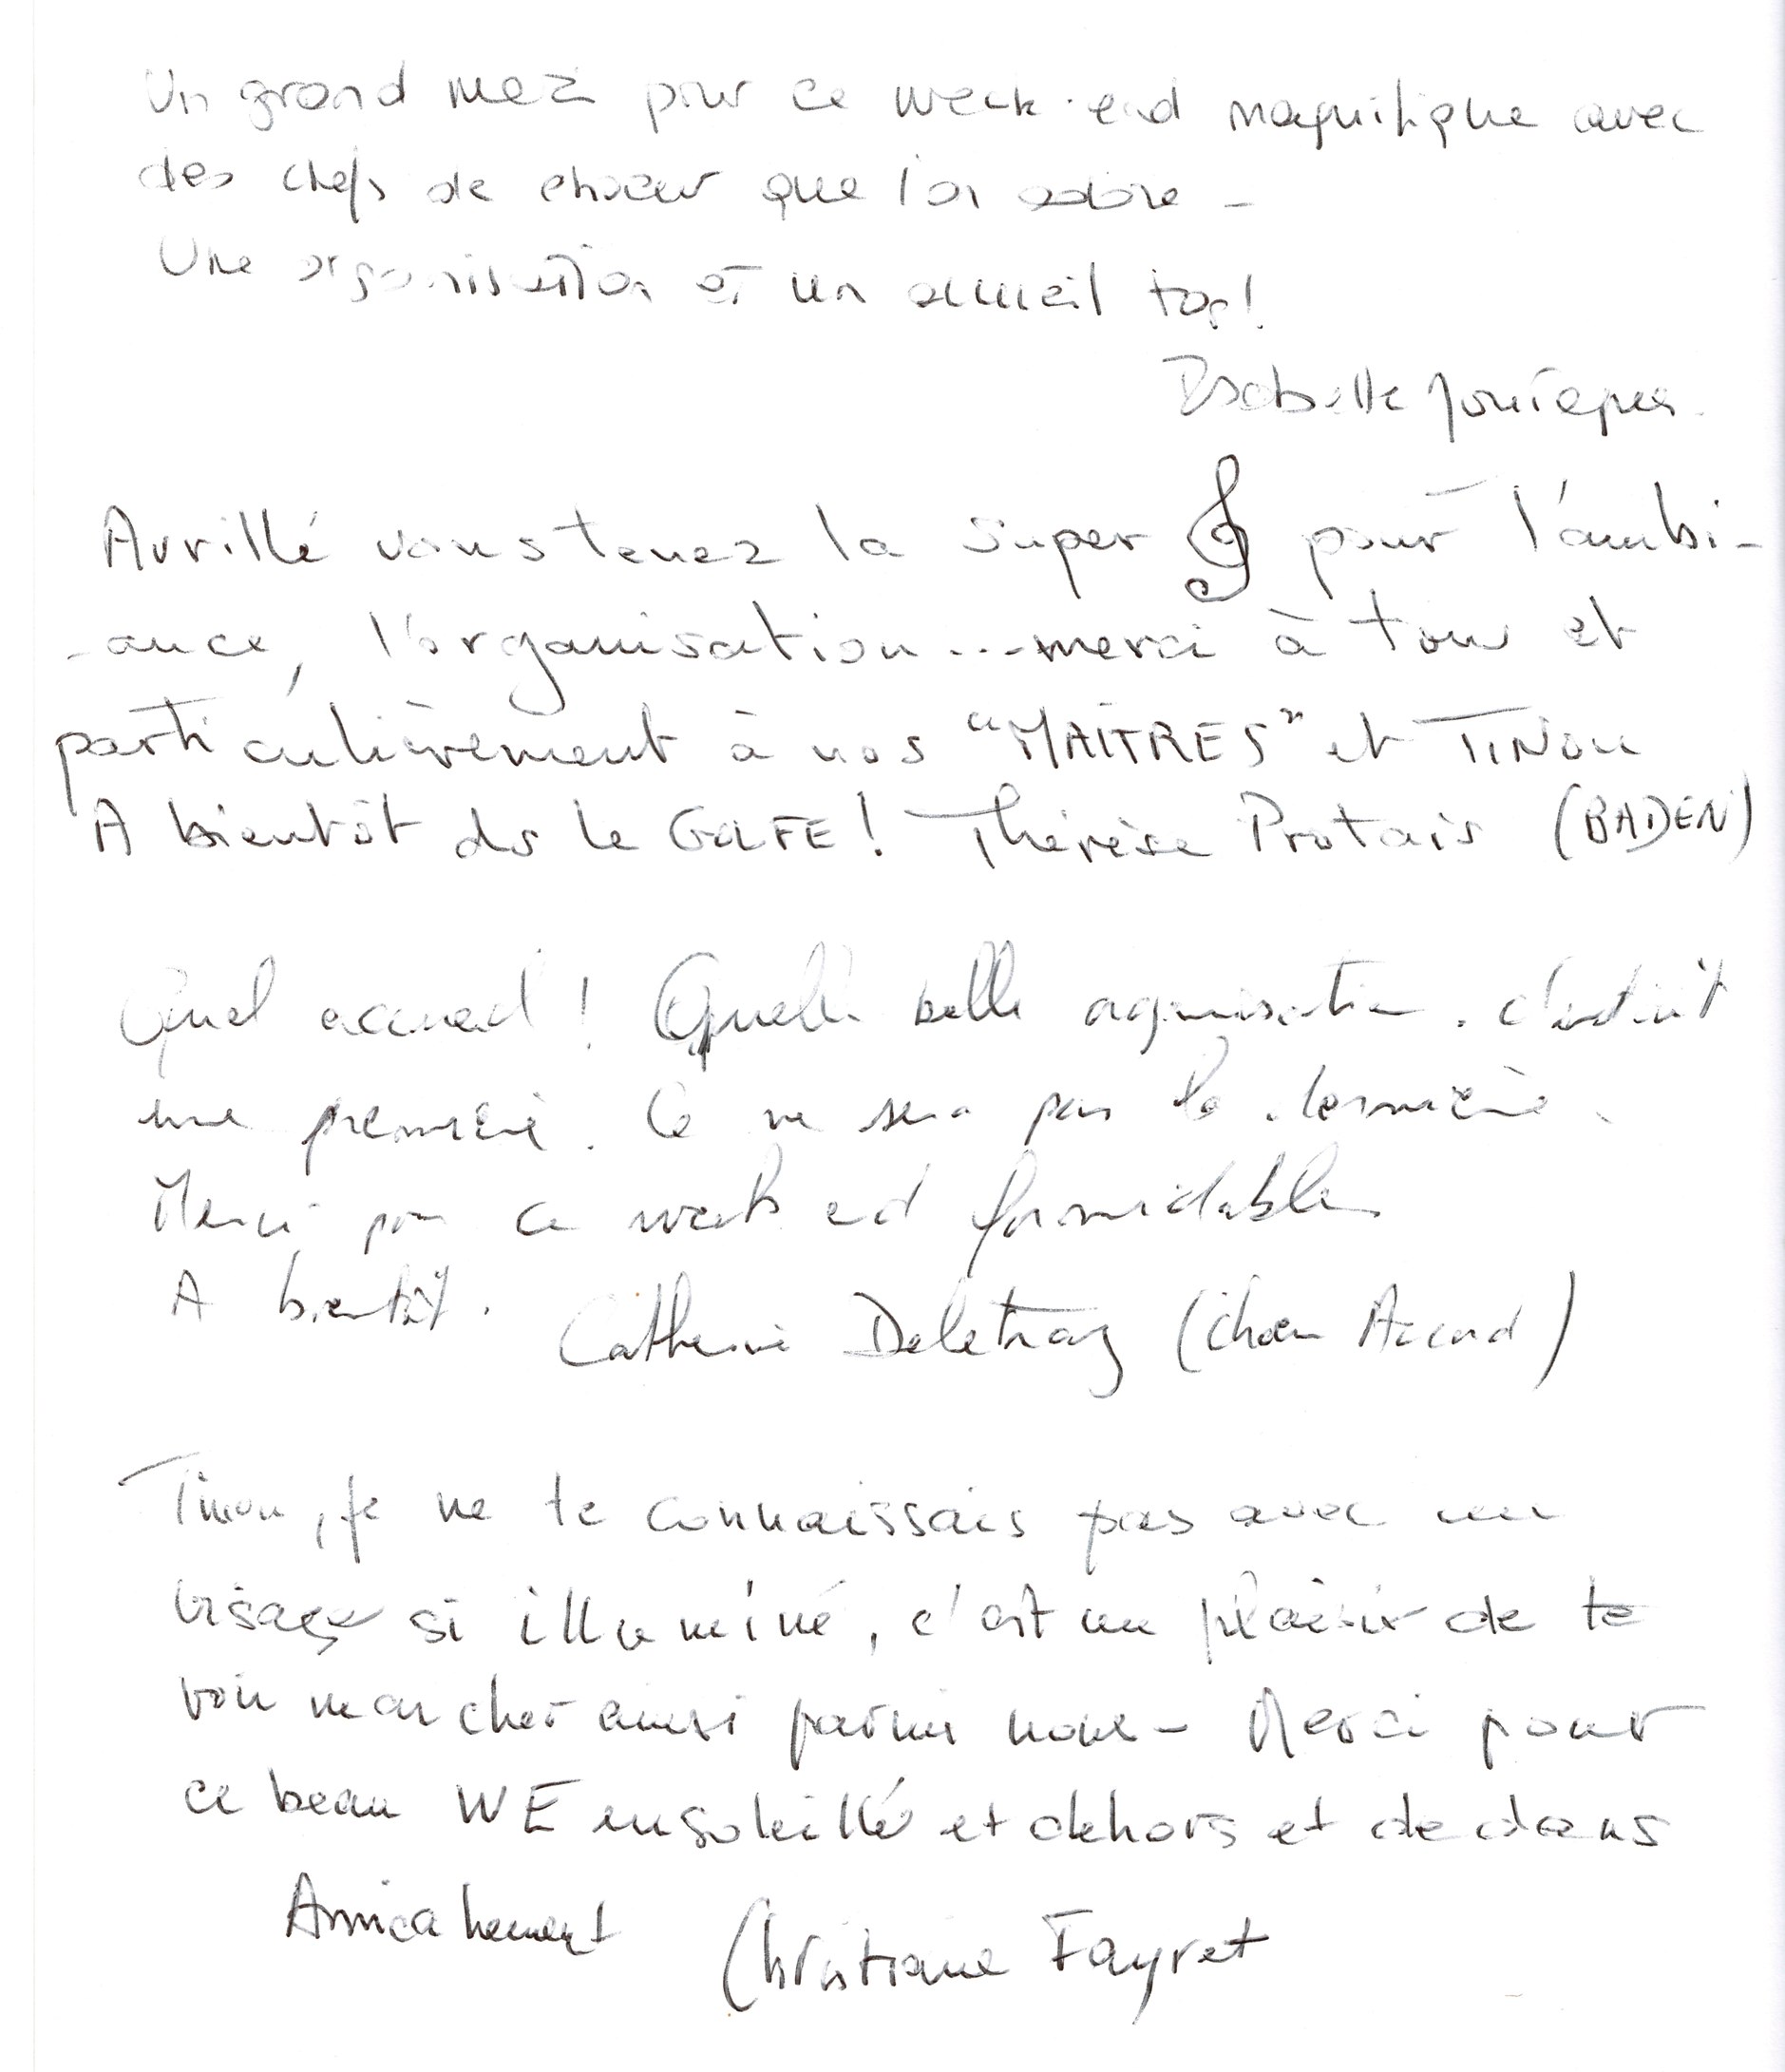 Un grand merci pour ce week-end magnifique avec
des chefs de choeur que l'on adore -
Une organisation et un accueil top!
Isabelle
Avrillé vous tenez la super pour l'ambi-
-ance, l'organisation...merci à tous et
particulièrement à nos "MAÎTRES" et TINou
A bientôt ds le GOLFE! Thérèse Protais (BADEN)
Quel accueil! Quelle belle organisation. C'était
une première. Ce ne sera pas la dernière.
Merci pour ce week end formidable
A bientôt. Catherine Deletraz (choeur Accord)
Tinou, je ne te connaissais pas avec un
visage si illuminé, c'est un plaisir de te
voir marcher ainsi parmi nous - Merci pour
ce beau WE ensoleillé et dehors et dedans
Amicalement Christiane Fayret